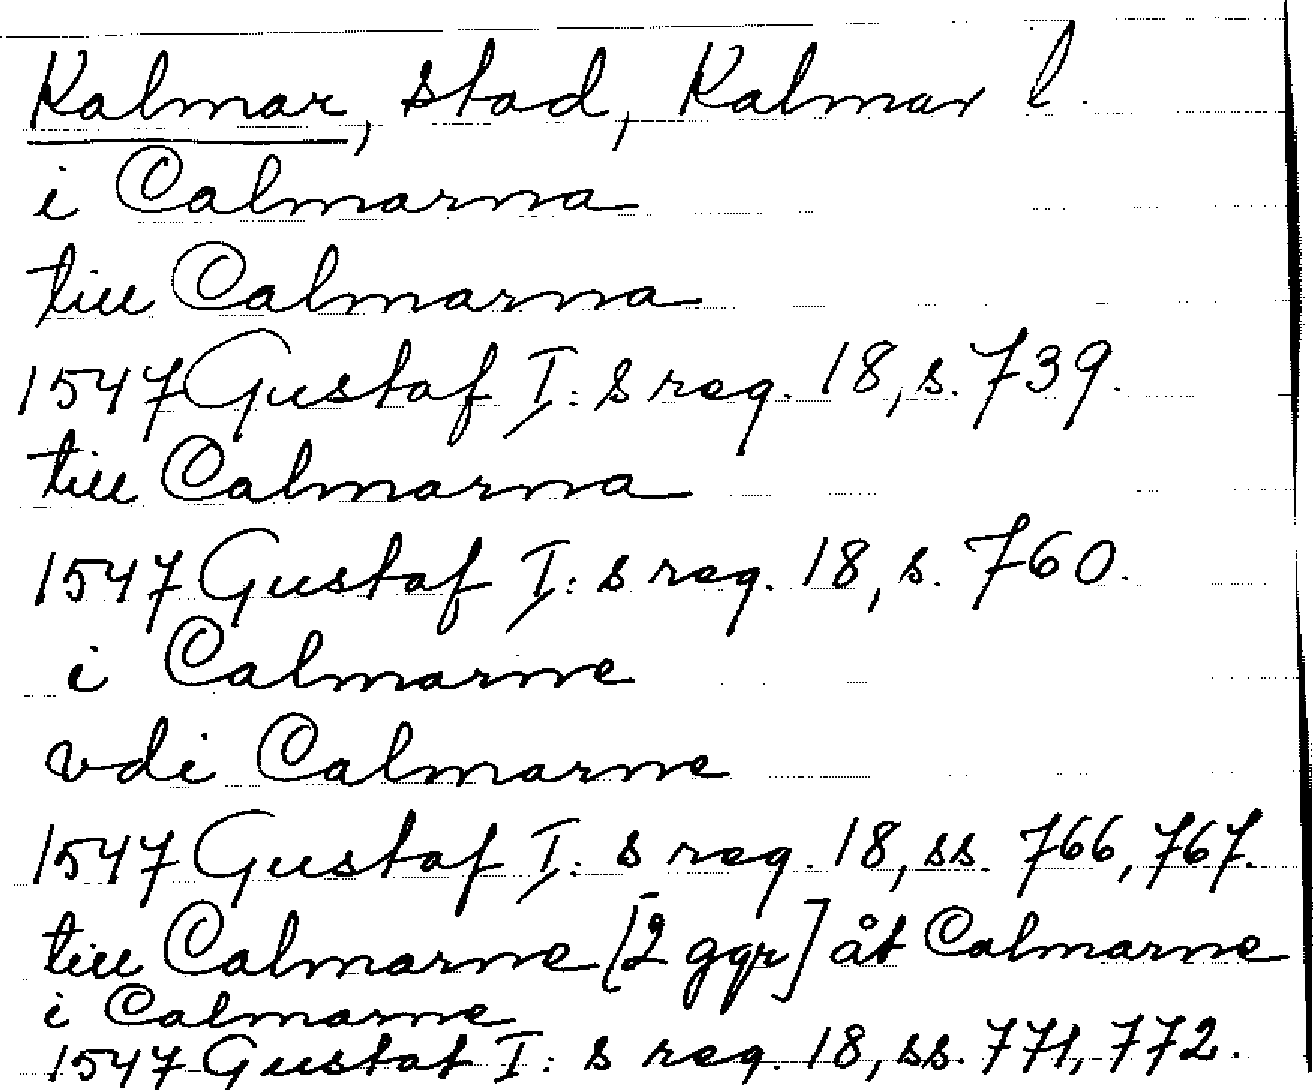 Kalmar, stad, Kalmar l.
i Calmarna
till Calmarna
1547 Gustaf I:s reg. 18, s. 739.
till Calmarna
1547 Gustaf I:s reg. 18, s. 760.
i Calmarne
vdi Calmarne
1547 Gustaf I:s reg. 18, ss. 766, 767.
till Calmarne [2 ggr] åt Calmarne
i Calmarne
1547 Gustaf I:s reg. 18, ss. 771, 772.